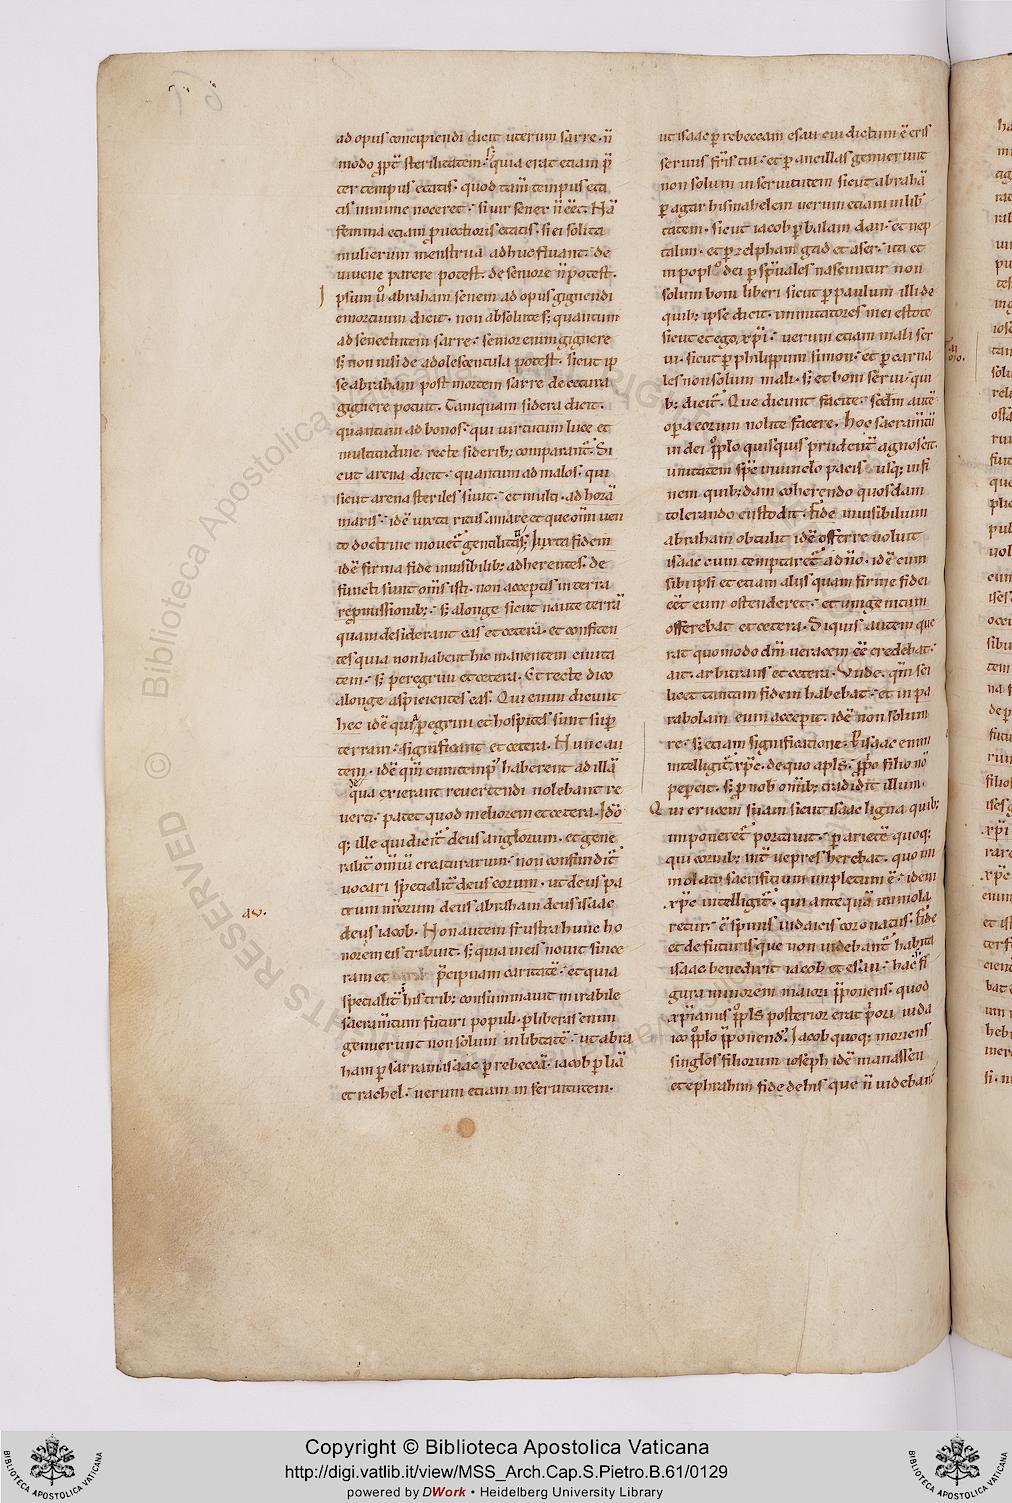 ad opus concipiendi dicit uterum sarre. n̄
modo ꝓpt̄ sterilitatem. s; quia erat etiam p̄
ter tempus etatis. quod tam̄ tempus eta
tis minime noceret. si uir senex n̄ eēt. Nā
femina etiam ꝓuectioris etatis. si ei solita
mulierum menstrua adhuc fluant. de
iuuene parere potest. de seniore n̄ potest.
Ipsum u̾o abraham senem ad opus gignendi
emortuum dicit. non absolute s; quantum
ad senectutem sarre. senior enim gignere
s; non nisi de adolescentula potest. sicut ip
se abraham post mortem sarre de cetura
gignere potuit. Tamquam sidera dicit.
quantum ad bonos. qui uirtutum luce et
multitudine recte siderib; comparant̄. Si
cut arena dicit. quantum ad malos. qui
sicut arena steriles sunt. et multi. ad horā
maris. idē iuxta ritus amare et que om̄i uen
to doctrine mouet̄ gentilitas; Iuxta fidem
idē firma fide inuisibilib; adherentes. de
functi sunt om̄s isti. non acceptis in terra
reꝓmissionib;. s; alonge sicut naute terrā
quam desiderant eas et cetera. et confiten
tes quia non habent hic manentem ciuita
tem. s; peregrini et cetera. Et recte dico
alonge aspicientes eas. Qui enim dicunt
hec idē quia ꝑegrini et hospites sunt sup̄
terram. significant et cetera. Nunc au
tem. idē qm̄ cum temp̄ haberent ad illā
de qua exierant reuertendi nolebant re
uerti. patet quod meliorem et cetera. Ido̾
q; ille qui dicit̄ deus anglorum. et gene
ralit̄ om̄iū creaturarum. non confundit̄
uocari specialit̄ deus eorum. ut deus pa
trum nr̄orum deus abraham deus isaac
deus iacob. Non autem frustra hunc ho
norem eis tribuit. s; quia in eis nouit since
ram et p̄cipuam caritatē. et quia
specialit̄ in his trib; consummauit mirabile
sacram̄tum futuri populi. ꝑ liberas enim
genuerunt non solum in libtatē. ut abra
ham ꝑ sarram. isaac ꝑ rebeccā. iacob ꝑ liā
et rachel. uerum etiam in seruitutem.
aω.
ut isaac ꝑ rebeccam esau cui dictum ē eris
seruus fr̄is tui. et ꝑ ancillas genuerunt
non solum in seruitutem sicut abrahā
ꝑ agar hismahelem uerum etiam in lib̄
tatem. sicut iacob ꝑ balam dan. et nep
talim. et ꝑ zelpham gad et aser. ita et
in popl̾o dei ꝑ sp̄uales nascuntur non
solum boni liberi sicut ꝑ paulum illi de
quib; ipse dicit. imitatores mei estote
sicut et ego xp̄i. uerum etiam mali ser
ui. sicut ꝑ philippum simon. et ꝑ carna
les non solum mali. s; et boni serui. qui
b; dicit̄. Que dicunt facite. sedm autē
oꝑa eorum nolite facere. Hoc sacram̄tū
in dei pp̾lo quisquis prudent̄ agnoscit.
unitatem sp̄e uinclo pacis. usq; in fi
nem quib;dam coherendo quosdam
tolerando custodit. Fide inuisibilium
abraham obtulit idē offerre uoluit
isaac cum temptaret̄ a dn̄o. idē cum
sibi ipsi et etiam alijs quam firme fidei
eēt eum ostenderet. et unigenitum
offerebat et cetera. Siquis autem que
rat quomodo dm̄ ueracem eē credebat.
ait. arbitrans et cetera. Unde. qm̄ sci
licet tantam fidem habebat. et in pa
rabolam eum accepit. idē non solum
re. s; etiam significatione. P̄ isaac enim
intelligit̄ xp̄c. de quo apl̄s. ꝓp̾o filio nō
peꝑcit. s; ꝓ nob om̄ib; tradidit illum.
Qui crucem suam sicut isaac ligna quib;
imponeret̄ portauit. ꝑ arietē quoq;
qui cornib; int̄ uepres herebat. quo im
molato sacrifitium impletum ē. idem
xp̄c intelligit̄. qui ante quā immola
retur. ē spinis iudaicis coronatus. Fide
et de futuris que non uidebant̄ habita
isaac benedixit iacob et esau. hac fi
gura minorem maiori p̄ponens. quod
xp̄ianus pp̾l̄s posterior erat p̄ori iuda
ico pp̾lo p̄ponend̾. Iacob quoq; moriens
singlos filiorum ioseph idē manassen
et ephraim fide de his que n̄ uidebant̄
Copyright © Biblioteca Apostolica Vaticana
http://digi.vatlib.it/view/MSS_Arch.Cap.S.Pietro.B.61/0129
powered by DWork • Heidelberg University Library